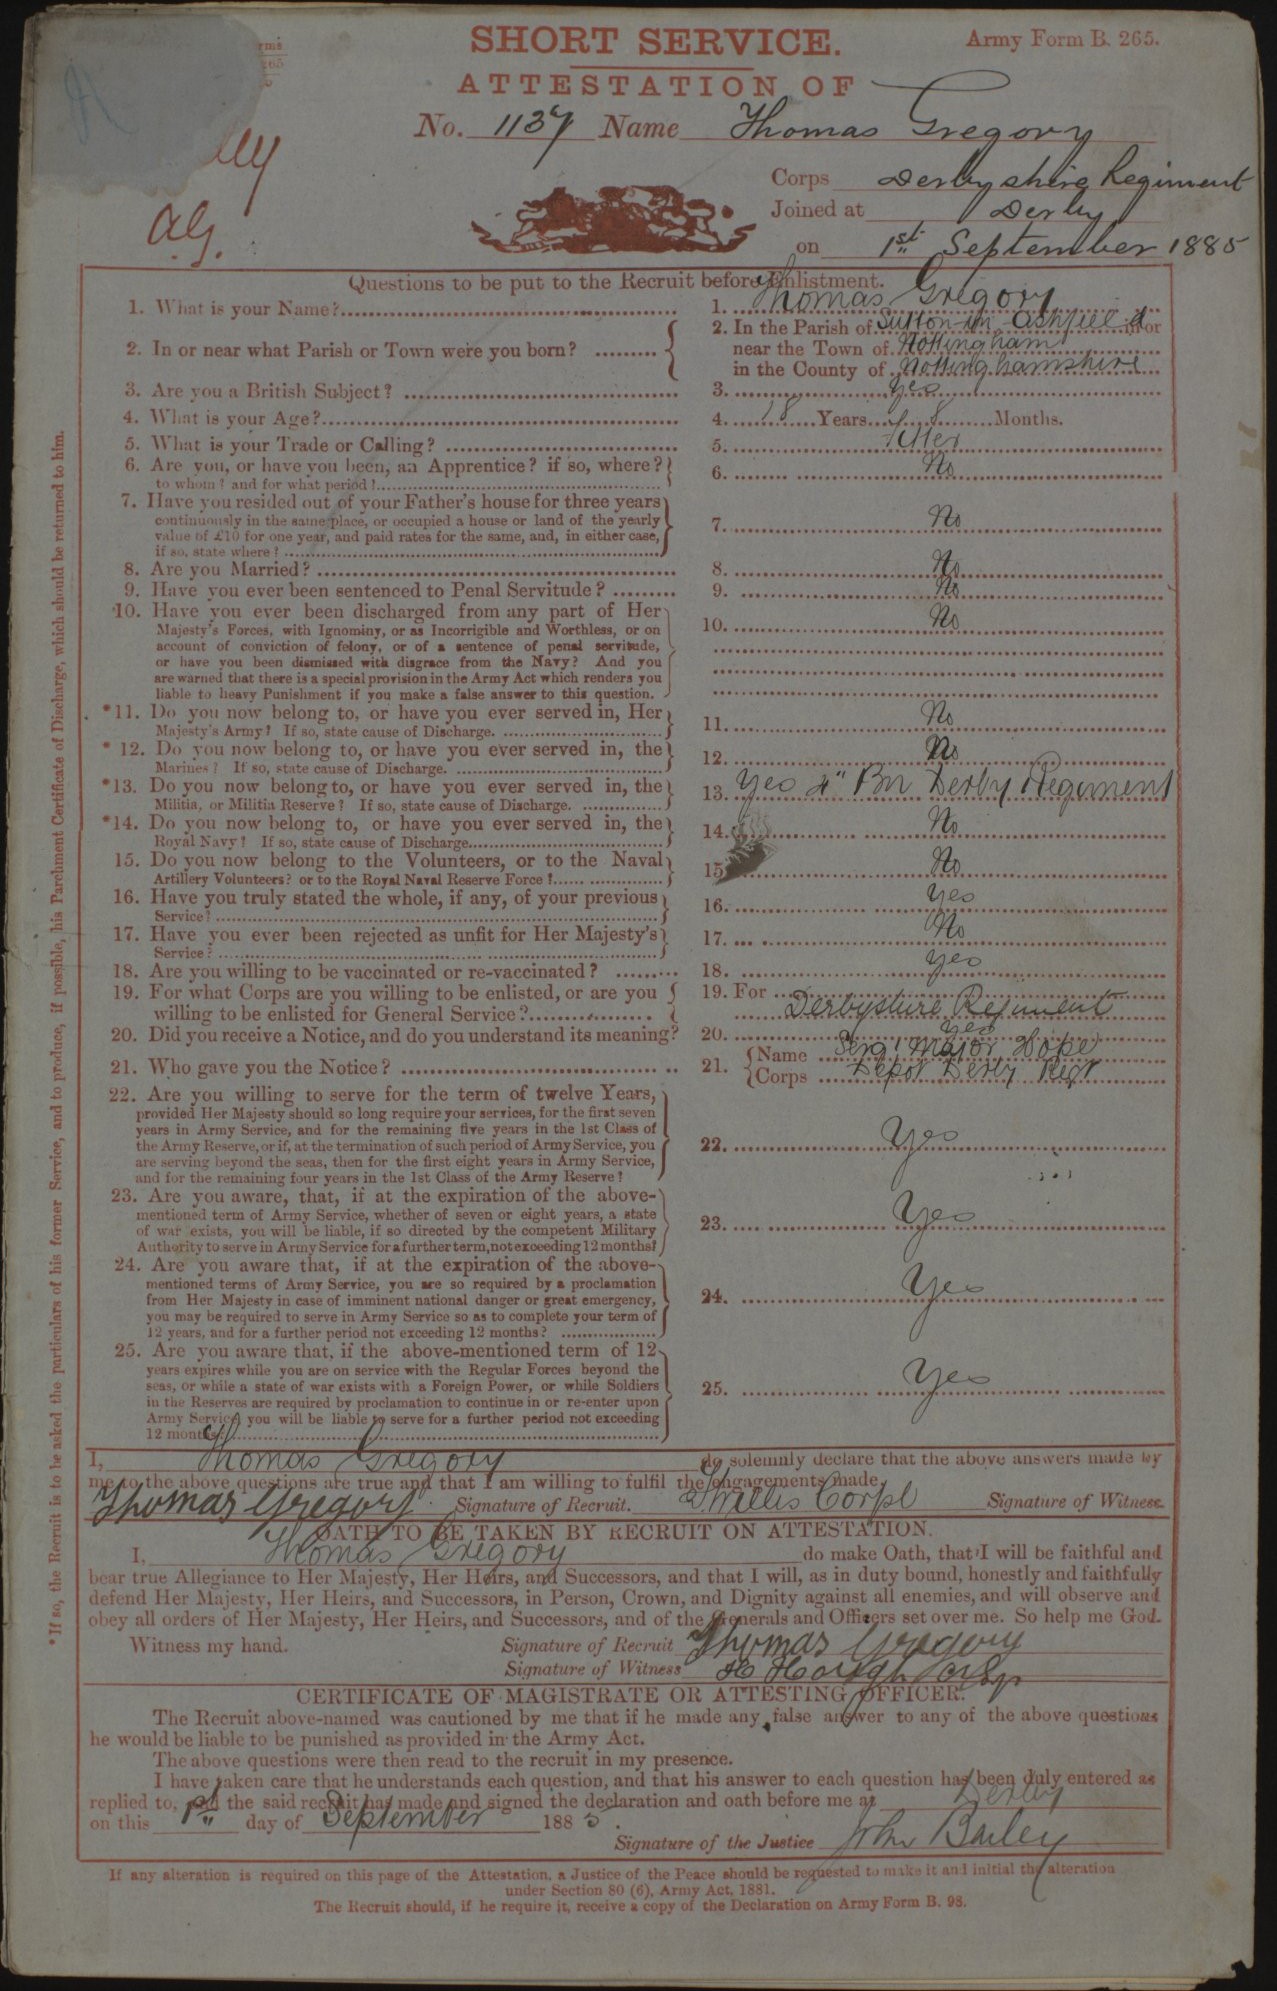 SHORT SERVICE.
Army Form B. 265.
ATTESTATION OF
No. 1137 Name Thomas Gregory
Corps Derbyshire Regiment
Joined at Derby
on 1st September 1885
A.G.
Questions to be put to the Recruit before Enlistment.
1. What is your Name?
1. Thomas Gregory
2. In or near what Parish or Town were you born?
2. In the Parish of Sutton in Ashfield in or
near the Town of Nottingham
in the County of Nottinghamshire
3. Are you a British Subject?
3. Yes
4. What is your Age?
4. 18 Years 8 Months.
5. What is your Trade or Calling?
5.
6. Are you, or have you been, an Apprentice? if so, where?
to whom? and for what period?
6. No
7. Have you resided out of your Father's house for three years
continuously in the same place, or occupied a house or land of the yearly
value of £10 for one year, and paid rates for the same, and, in either case,
if so, state where?
7. No
8. Are you Married?
8. No
9. Have you ever been sentenced to Penal Servitude?
9. No
10. Have you ever been discharged from any part of Her
Majesty's Forces, with Ignominy, or as Incorrigible and Worthless, or on
account of conviction of felony, or of a sentence of penal servitude,
or have you been dismissed with disgrace from the Navy? And you
are warned that there is a special provision in the Army Act which renders you
liable to heavy Punishment if you make a false answer to this question.
10. No
*11. Do you now belong to, or have you ever served in, Her
Majesty's Army? If so, state cause of Discharge.
11. No
* 12. Do you now belong to, or have you ever served in, the
Marines? If so, state cause of Discharge.
12. No
*13. Do you now belong to, or have you ever served in, the
Militia, or Militia Reserve? If so, state cause of Discharge.
13. Yes 4" Bn Derby Regiment
*14. Do you now belong to, or have you ever served in, the
Royal Navy? If so, state cause of Discharge.
14. No
15. Do you now belong to the Volunteers, or to the Naval
Artillery Volunteers? or to the Royal Naval Reserve Force?
15. No
16. Have you truly stated the whole, if any, of your previous
Service?
16. Yes
17. Have you ever been rejected as unfit for Her Majesty's
Service?
17. No
18. Are you willing to be vaccinated or re-vaccinated?
18. Yes
19. For what Corps are you willing to be enlisted, or are you
willing to be enlisted for General Service?
19. For
Derbyshire Regiment
20. Did you receive a Notice, and do you understand its meaning?
20. Yes
21. Who gave you the Notice?
21. Name Sergt Major Hope
Corps Depot Derby Regt
22. Are you willing to serve for the term of twelve Years,
provided Her Majesty should so long require your services, for the first seven
years in Army Service, and for the remaining five years in the 1st Class of
the Army Reserve, or if, at the termination of such period of Army Service, you
are serving beyond the seas, then for the first eight years in Army Service,
and for the remaining four years in the 1st Class of the Army Reserve?
22. Yes
23. Are you aware, that, if at the expiration of the above-
mentioned term of Army Service, whether of seven or eight years, a state
of war exists, you will be liable, if so directed by the competent Military
Authority to serve in Army Service for a further term, not exceeding 12 months?
23. Yes
24. Are you aware that, if at the expiration of the above-
mentioned terms of Army Service, you are so required by a proclamation
from Her Majesty in case of imminent national danger or great emergency,
you may be required to serve in Army Service so as to complete your term of
12 years, and for a further period not exceeding 12 months?
24. Yes
25. Are you aware that, if the above-mentioned term of 12
years expires while you are on service with the Regular Forces beyond the
seas, or while a state of war exists with a Foreign Power, or while Soldiers
in the Reserves are required by proclamation to continue in or re-enter upon
Army Service, you will be liable to serve for a further period not exceeding
12 months?
25. Yes
I, Thomas Gregory do solemnly declare that the above answers made by
me to the above questions are true and that I am willing to fulfil the engagements made.
Thomas Gregory Signature of Recruit. Willis Corpl Signature of Witness.
OATH TO BE TAKEN BY RECRUIT ON ATTESTATION.
I, Thomas Gregory do make Oath, that I will be faithful and
bear true Allegiance to Her Majesty, Her Heirs, and Successors, and that I will, as in duty bound, honestly and faithfully
defend Her Majesty, Her Heirs, and Successors, in Person, Crown, and Dignity against all enemies, and will observe and
obey all orders of Her Majesty, Her Heirs, and Successors, and of the Generals and Officers set over me. So help me God.
Witness my hand. Signature of Recruit Thomas Gregory
Signature of Witness H Hough
CERTIFICATE OF MAGISTRATE OR ATTESTING OFFICER.
The Recruit above-named was cautioned by me that if he made any false answer to any of the above questions
he would be liable to be punished as provided in the Army Act.
The above questions were then read to the recruit in my presence.
I have taken care that he understands each question, and that his answer to each question has been duly entered as
replied to, and the said recruit has made and signed the declaration and oath before me at Derby
on this 1st day of September 1885.
Signature of the Justice John Bailey
If any alteration is required on this page of the Attestation, a Justice of the Peace should be requested to make it and initial the alteration
under Section 80 (6), Army Act, 1881.
The Recruit should, if he require it, receive a copy of the Declaration on Army Form B. 98.
*If so, the Recruit is to be asked the particulars of his former Service, and to produce, if possible, his Parchment Certificate of Discharge, which should be returned to him.